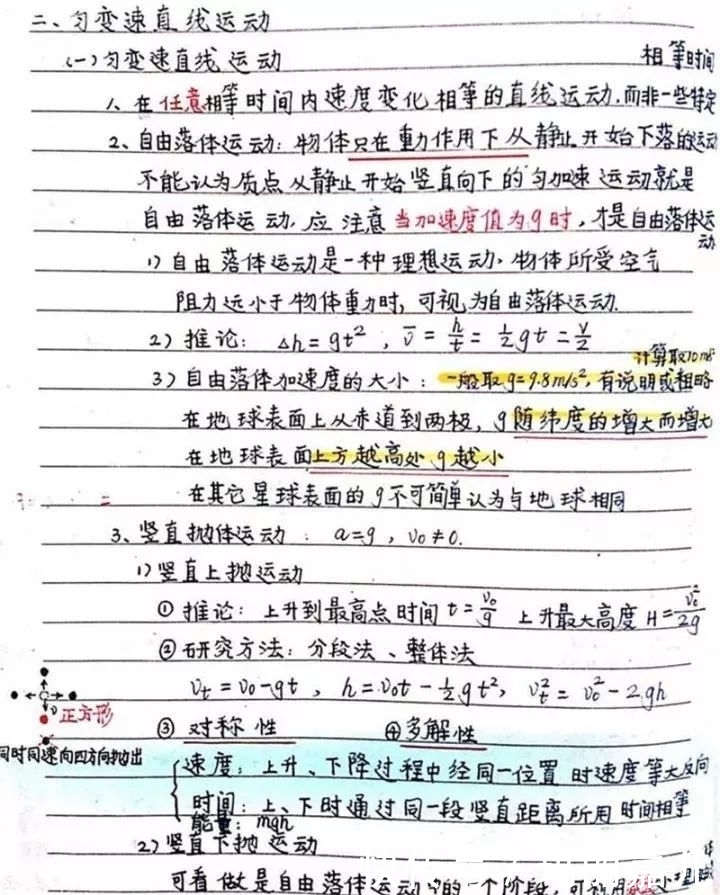 二、匀变速直线运动
(一)匀变速直线运动
相等时间
1、在任意相等时间内速度变化相等的直线运动.而非一些特定
2、自由落体运动：物体只在重力作用下从静止开始下落的运动
不能认为质点从静止开始竖直向下的匀加速运动就是
自由落体运动.应注意当加速度值为g时，才是自由落体运
动
1) 自由落体运动是一种理想运动.物体所受空气
阻力远小于物体重力时，可视为自由落体运动.
2) 推论：Δh=gt²，v̅=h/t=½gt=v/2
计算取10m/s²
3) 自由落体加速度的大小：一般取g=9.8m/s²，有说明或粗略
在地球表面上从赤道到两极，g随纬度的增大而增大
在地球表面上方越高处g越小
在其它星球表面的g不可简单认为与地球相同
3、竖直抛体运动：a=g，v₀≠0.
1) 竖直上抛运动
① 推论：上升到最高点时间t=v₀/g 上升最大高度H=v₀²/2g
② 研究方法：分段法、整体法
vt=v₀-gt，h=v₀t-½gt²，vt²=v₀²-2gh
正方形
③ 对称性 ④多解性
同时同速向四方向抛出
速度：上升、下降过程中经同一位置时速度等大反向
时间：上、下时通过同一段竖直距离所用时间相等
能量：mgh
2) 竖直下抛运动
可看做是自由落体运动中的一个阶段，可利用